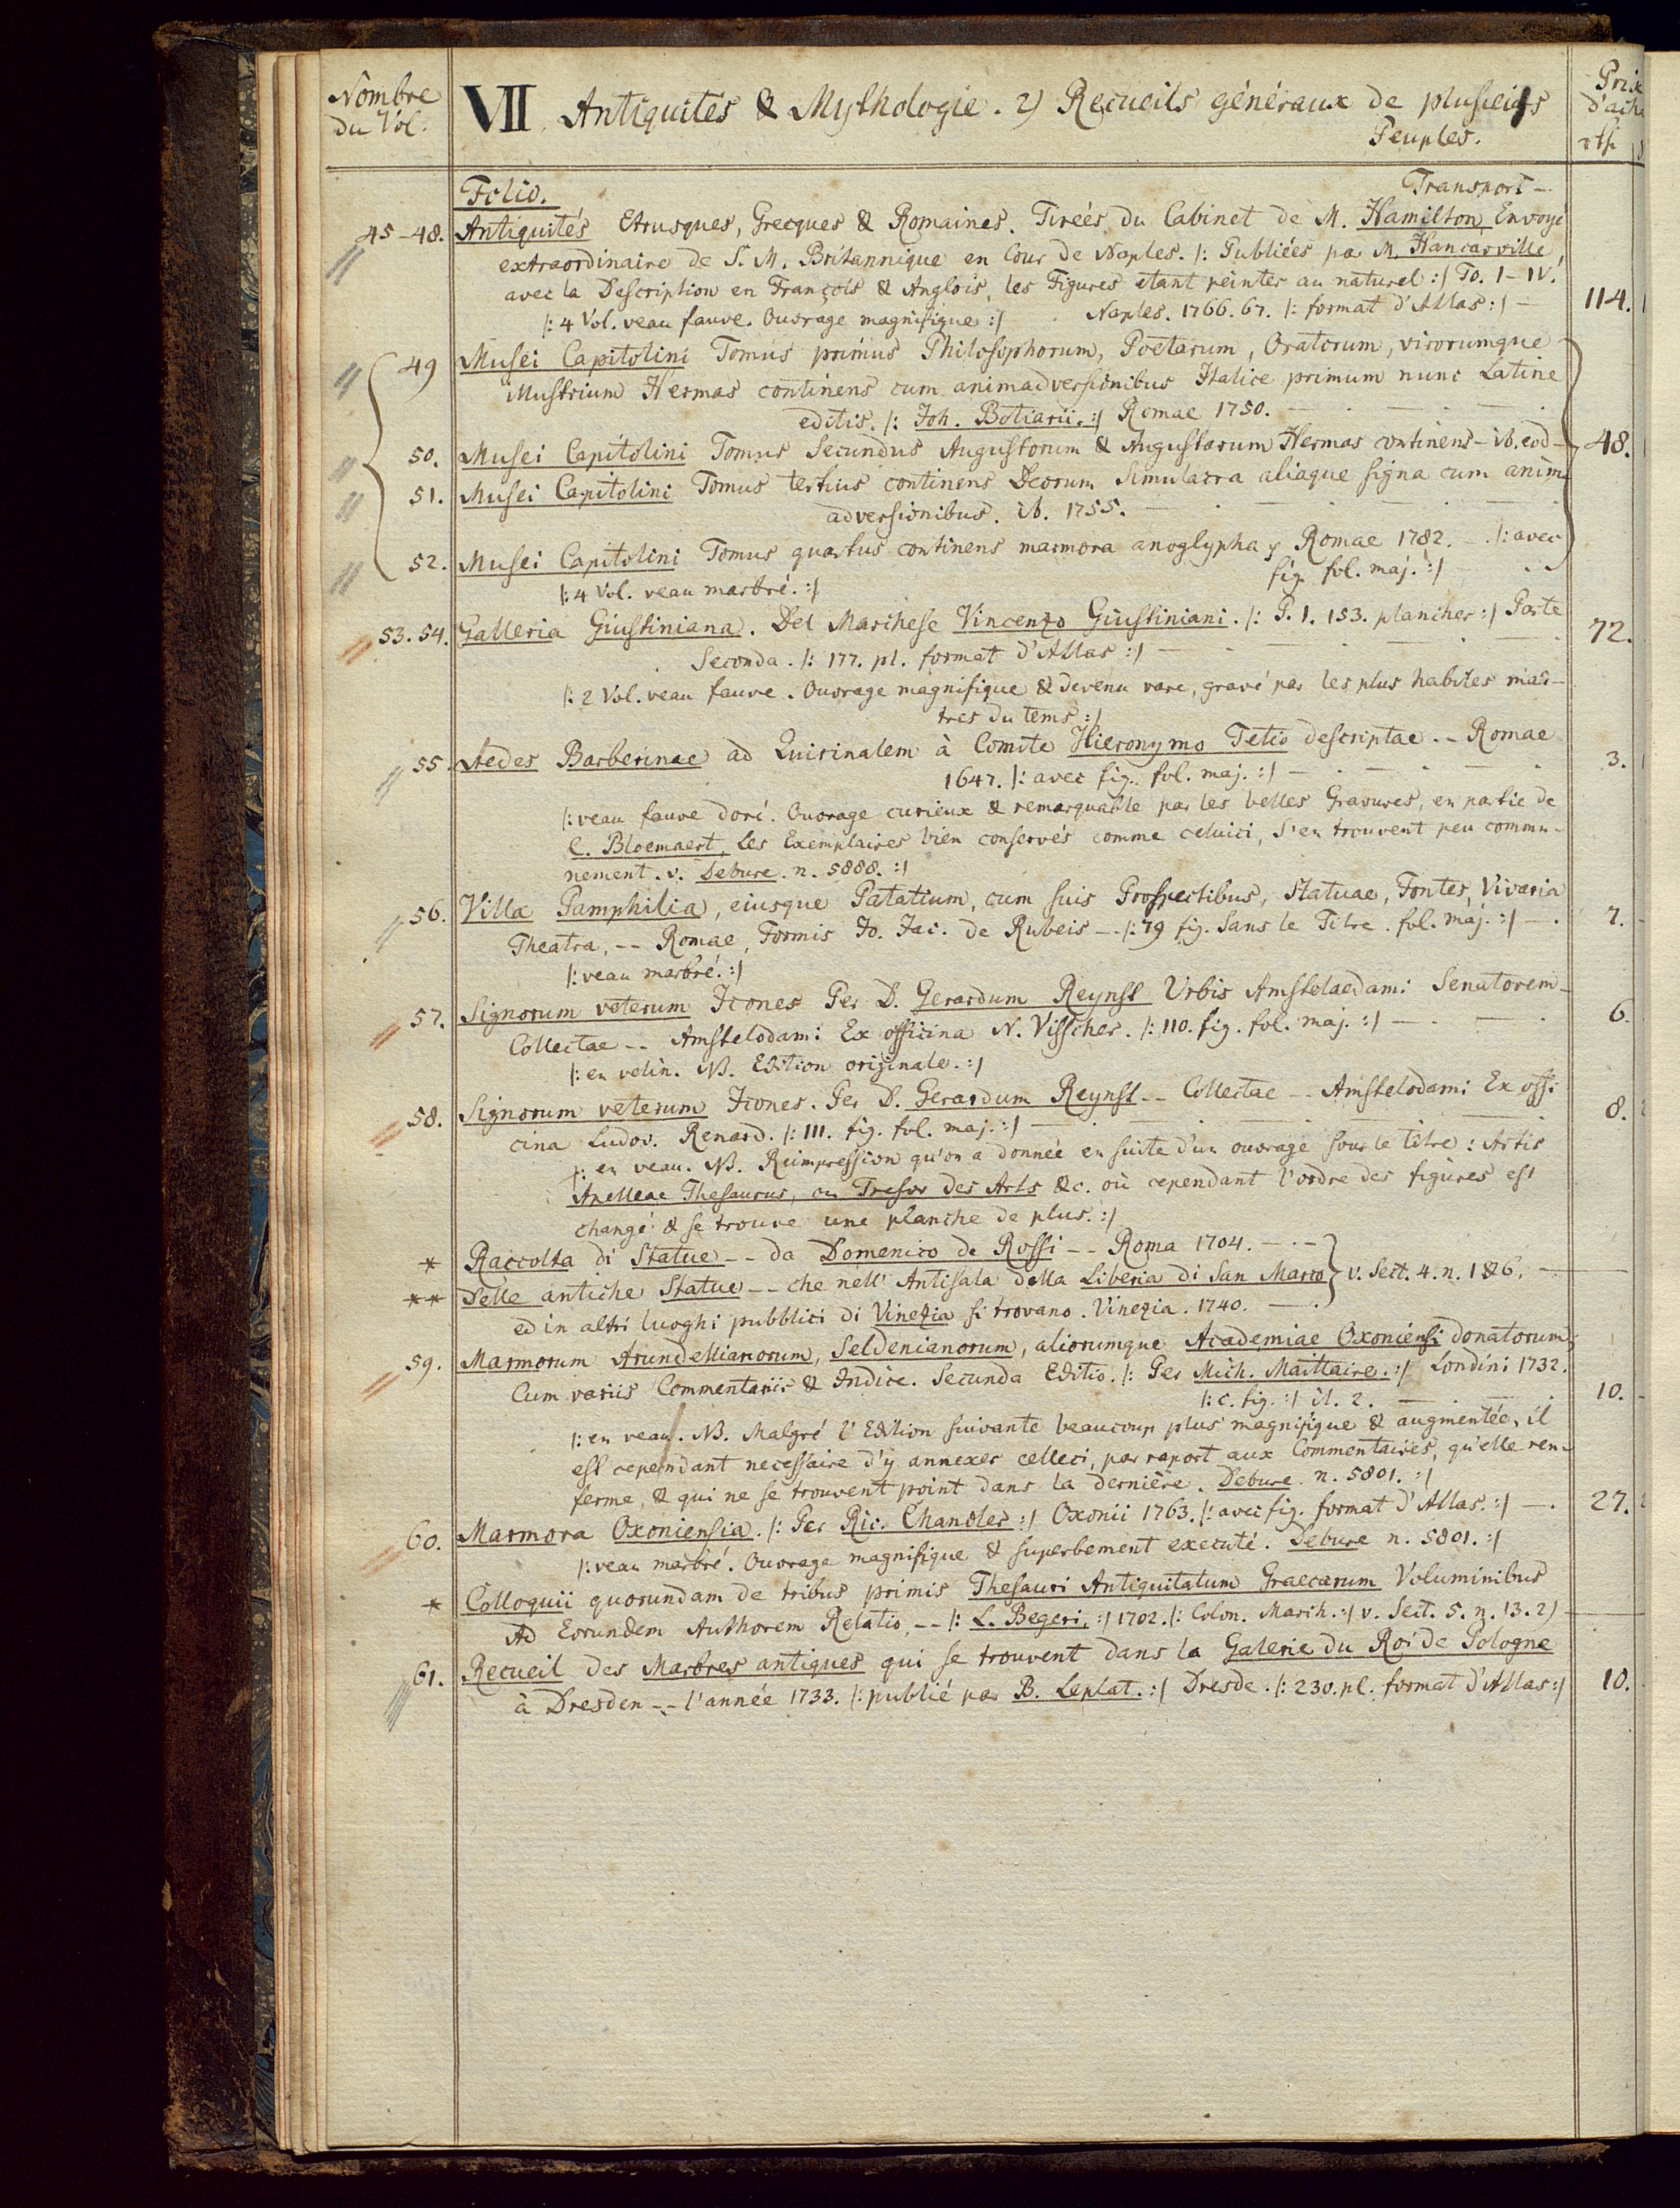 Nombre
du Vol.
VII. Antiquités & Mythologie. 2) Recueils généraux de plusieurs
Peuples.
Prix
d'acha
rthl
Folio.
Transport –
45–48. Antiquités Etrusques, Grecques & Romaines. Tirées du Cabinet de M. Hamilton, Envoyé
extraordinaire de S. M. Britannique en Cour de Naples. /: Publiées par M. Hancarville
avec la Description en François & Anglois, les Figures etant peintes au naturel :/ To. I–IV.
/: 4 Vol. veau fauve. Ouvrage magnifique :/ Naples. 1766. 67. /: format d'Atlas :/ – 114.
49 Musei Capitolini Tomus primus Philosophorum, Poetarum, Oratorum, virorumque
illustrium Hermas continens cum animadversionibus Italice primum nunc Latine
editis. /: Joh. Botiarii. :/ Romae 1750.
50. Musei Capitolini Tomus Secundus Augustorum & Augustarum Hermas continens – ib. eod – 48.
51. Musei Capitolini Tomus tertius continens Deorum Simulacra aliaque signa cum anim
adversionibus. ib. 1755.
52. Musei Capitolini Tomus quartus continens marmora anoglypha Romae 1782. – /: avec
fig. fol. maj. :/
/: 4 Vol. veau marbré. :/
53. 54. Galleria Giustiniana. Del Marchese Vincenzo Giustiniani. /: P. 1. 153. planches :/ Parte
Seconda. /: 177. pl. format d'Atlas :/ – 72.
/: 2 Vol. veau fauve. Ouvrage magnifique & devenu rare, gravé par les plus habiles mai-
tres du tems :/
55. Aedes Barberinae ad Quirinalem à Comite Hieronymo Tetio descriptae. -- Romae
1647. /: avec fig. fol. maj. :/ – 3.
/: veau fauve doré. Ouvrage curieux & remarquable par les belles Gravures, en partie de
C. Bloemaert, les Exemplaires bien conservés comme celuici, s'en trouvent peu commu-
nement. v. Debure. n. 5888. :/
56. Villa Pamphilia, eiusque Palatium, cum suis Prospectibus, Statuae, Fontes, Vivaria
Theatra, -- Romae, Formis Jo. Jac. de Rubeis -- /: 79 fig. Sans le Titre. fol. maj. :/ – 7.
/: veau marbré. :/
57. Signorum veterum Icones Per D. Gerardum Reynst Urbis Amstelaedami Senatorem –
Collectae -- Amstelodami Ex officina N. Visscher. /: 110. fig. fol. maj. :/ – 6.
/: en velin. NB. Edition originale. :/
58. Signorum veterum Icones. Per D. Gerardum Reynst -- Collectae -- Amstelodami Ex offi
cina Ludov. Renard. /: 111. fig. fol. maj. :/ – 8.
/: en veau. NB. Reimpression qu'on a donnée en suite d'un ouvrage sous le titre: Artis
Apelleae Thesaurus, ou Tresor des Arts &c. où cependant l'ordre des figures est
changé & se trouve une planche de plus. :/
* Raccolta di Statue -- da Domenico de Rossi -- Roma 1704. –
** Delle antiche Statue -- che nell' Antisala della Libreria di San Marco } v. Sect. 4. n. 1 & 6. –
ed in altri luoghi pubblici di Vinezia si trovano. Vinezia. 1740. –
59. Marmorum Arundellianorum, Seldenianorum, aliorumque Academiae Oxoniensi donatorum,
Cum variis Commentariis & Indice. Secunda Editio. /: Per Mich. Maittaire. :/ Londini 1732.
/: c. fig. :/ il. 2. – 10.
/: en veau. NB. Malgré l'Edition suivante beaucoup plus magnifique & augmentée, il
est cependant necessaire d'y annexer celleci, par raport aux Commentaires, qu'elle ren-
ferme, & qui ne se trouvent point dans la dernière. Debure. n. 5801. :/
60. Marmora Oxoniensia. /: Per Ric. Chandler :/ Oxonii 1763. /: avec fig. format d'Atlas. :/ – 27.
/: veau marbré. Ouvrage magnifique & superbement executé. Debure n. 5801. :/
* Colloquii quorundam de tribus primis Thesauri Antiquitatum Graecarum Voluminibus
Ad Eorundem Authorem Relatio, -- /: L. Begeri, :/ 1702. /: Colon. March. :/ v. Sect. 5. n. 13. 2)
61. Recueil des Marbres antiques qui se trouvent dans la Galerie du Roi de Pologne
à Dresden -- l'année 1733. /: publié par B. Leplat. :/ Dresde. /: 230. pl. format d'Atlas :/ 10.